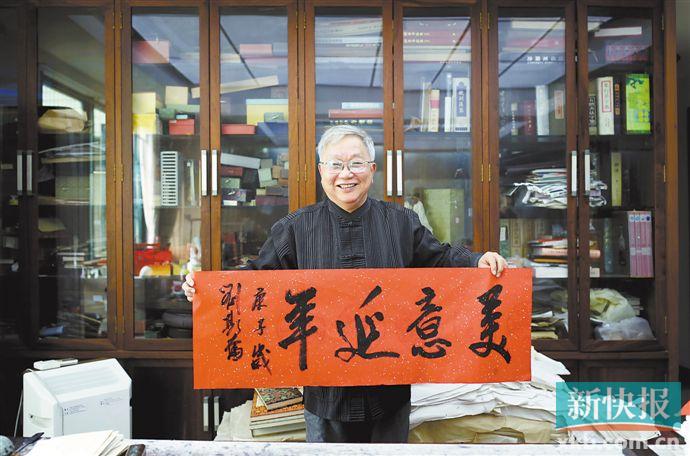 美意延年
庚子歲
劉斯奮
新快报
xkb.com.cn